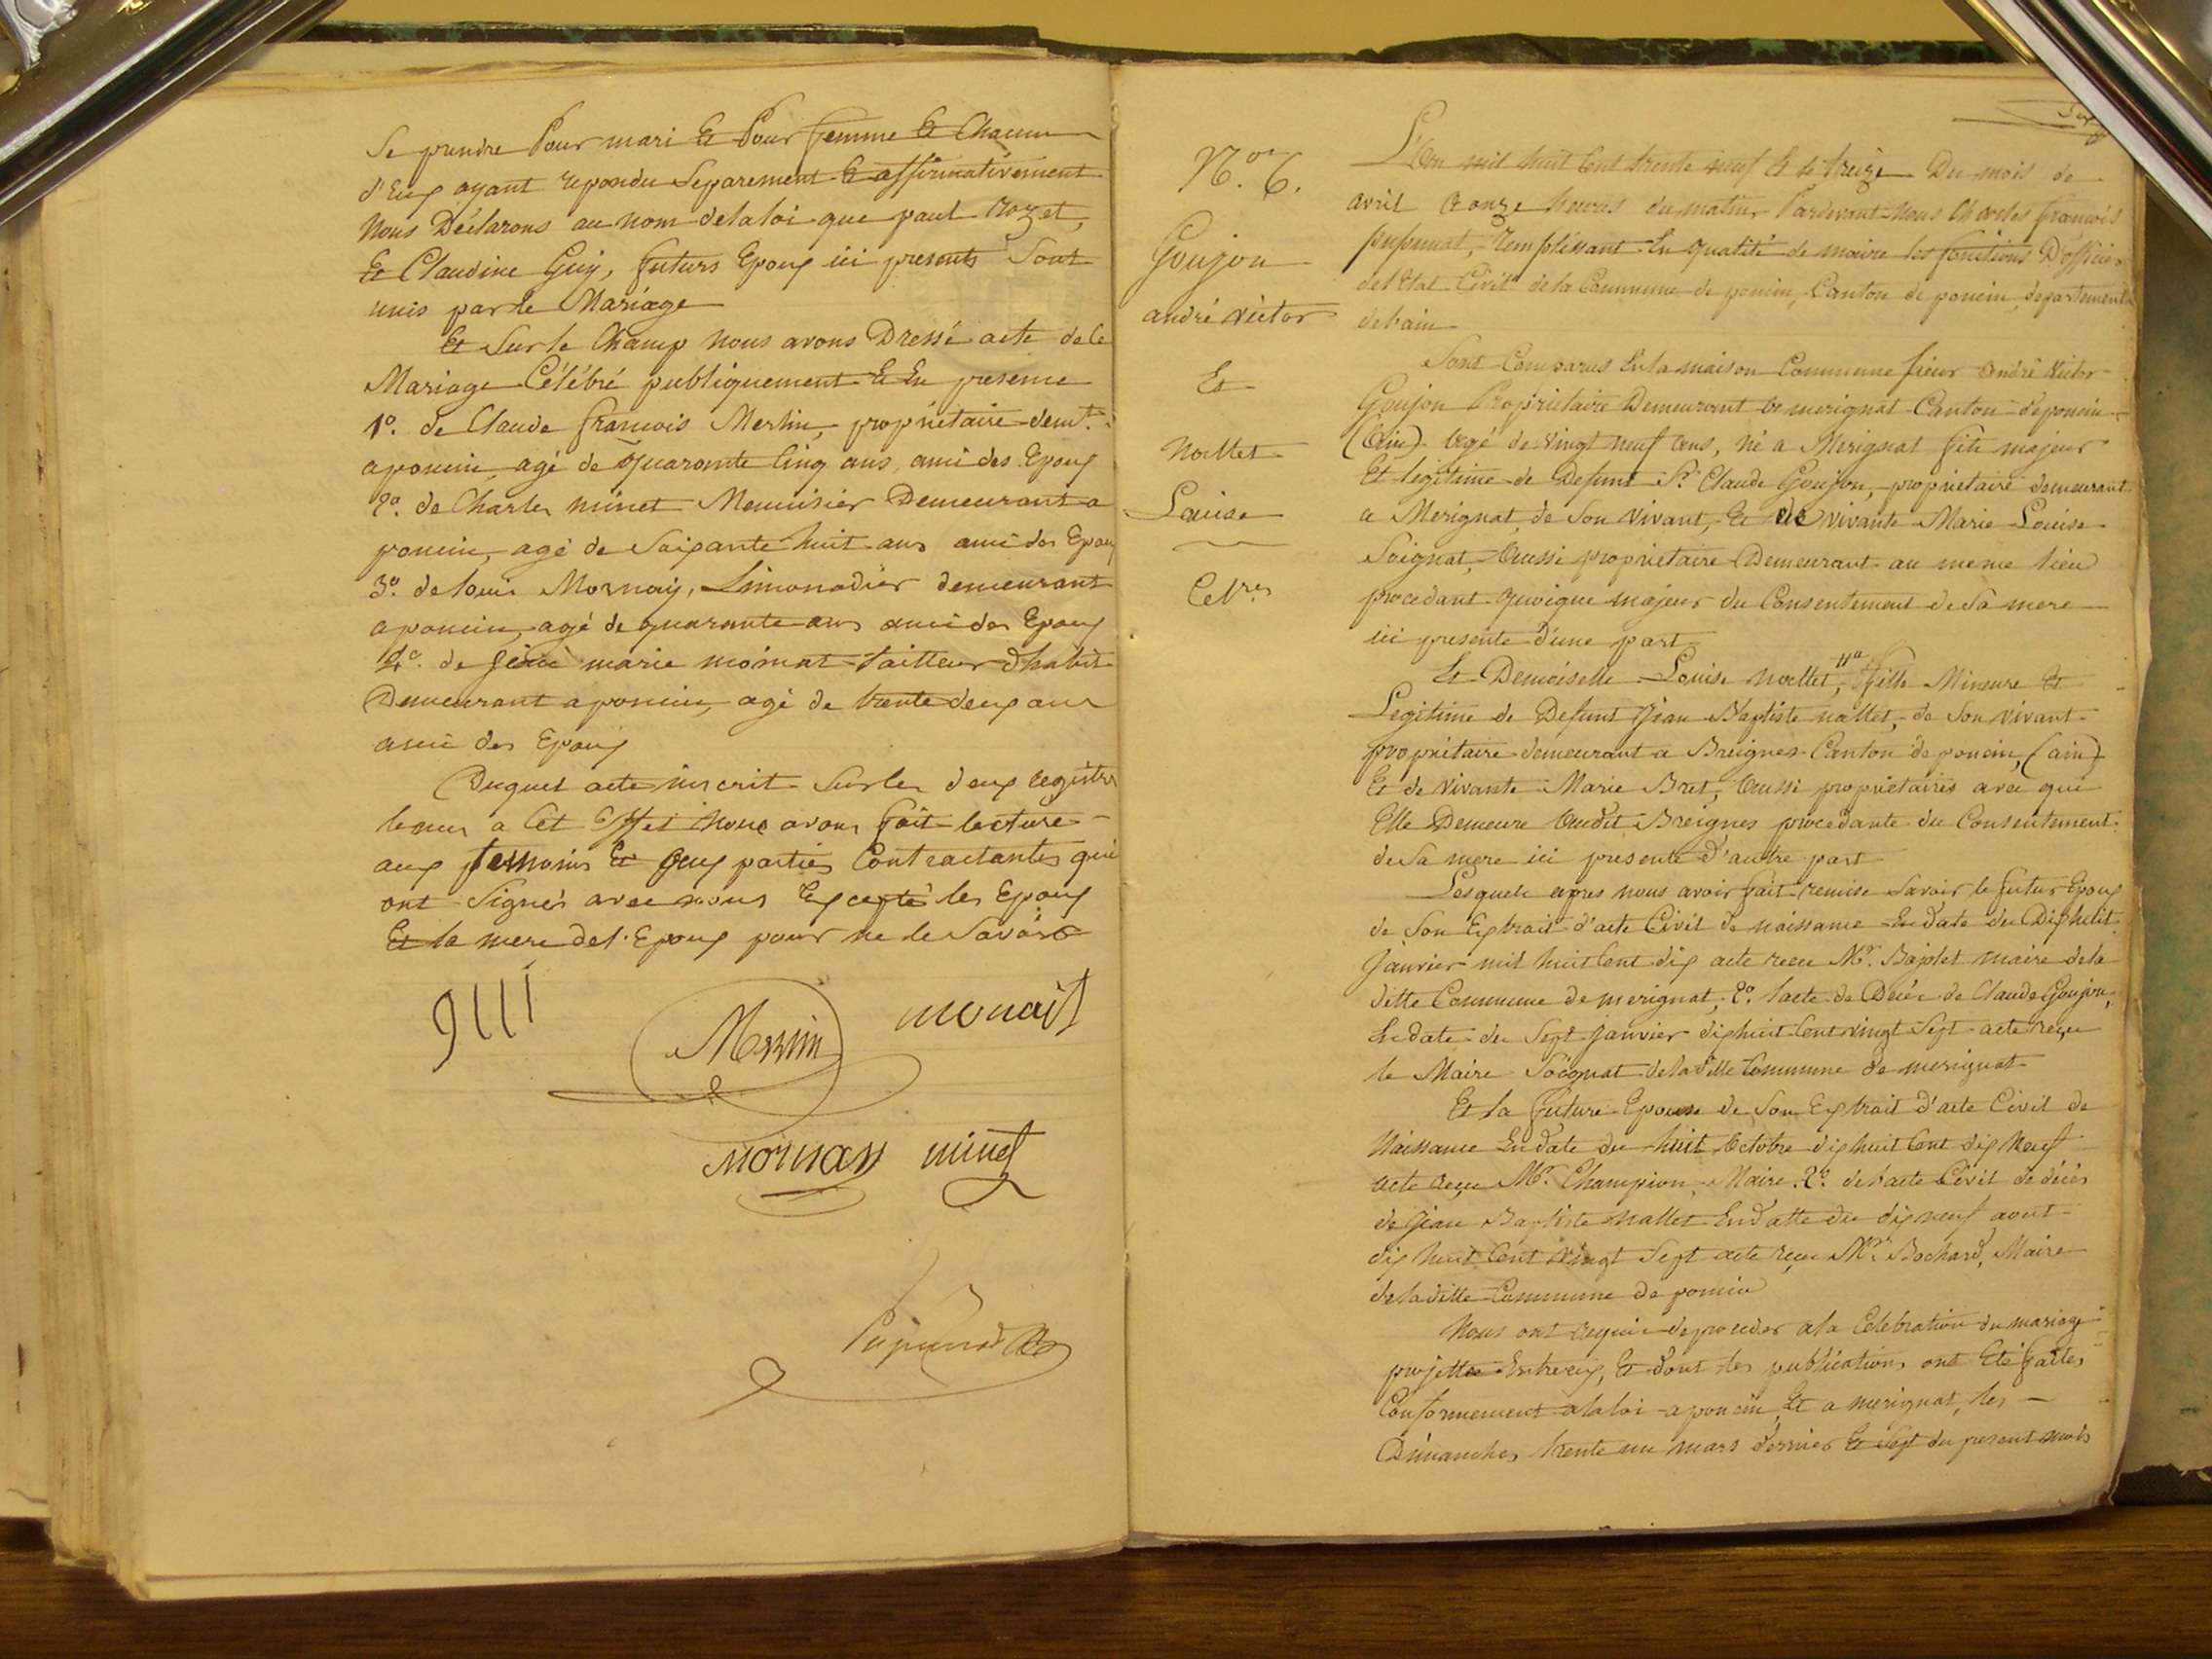 Se prendre Pour mari Et Pour femme Et Chacun
d'Eux ayant repondu Separement Et affirmativement
Nous Déclarons au nom delaloi que paul rozet,
Et Claudine Guy, futurs Epoux ici presents Sont
unis par le Mariage
Et Sur le Champ nous avons Dressé acte de Ce
Mariage Célébré publiquement Et En presence
1º. de Claude francois Merlin, propriétaire demt.
aponcin, agé de quarante Cinq ans, ami des Epoux
2º. de Charles minet Menuisier Demeurant a
poncin, agé de Soixante huit ans ami des Epoux
3º. de louis Mornay, Limonadier demeurant
aponcin, agé de quarante ans ami des Epoux
4º. de marie moinat tailleur d'habit
Demeurant aponcin, agé de trente deux ans
ami des Epoux
Duquel acte inscrit Sur les deux registres
tenus a Cet Effet Nous avons fait lecture
aux temoins Et aux parties Contractantes qui
ont Signés avec nous Excepté les Epoux
Et la mere del'Epoux pour ne le Savoir
Merlin
mornay minet
Nº. 6.
Goujon
andré victor
Et
Nallet
Louise
L'an mil huit Cent trente neuf Et le treize Du mois de
avril a onze heures du matin Pardevant Nous Charles françois
remplissant En qualité de maire les fonctions D'officier
del'Etat Civil dela Commune de poncin, Canton de poncin, departement
delain
Sont Comparus En la maison Commune Sieur andré Victor
Goujon Propriétaire Demeurant a merignat Canton deponcin
(ain) agé de vingt neuf ans, né a Merignat fils majeur
Et legitime de Defunt Sr. Claude Goujon, propriétaire demeurant
a Merignat, de Son vivant, Et de vivante Marie Louise
Soignat, aussi propriétaire Demeurant au meme lieu
procedant quoique majeur du Consentement de Sa mere
ici presente d'une part
Et Demoiselle Louise nallet, fille Mineure Et
Legitime de Defunt Jean Baptiste nallet, de Son vivant
propriétaire demeurant a Breignes Canton de poncin, (ain)
Et de vivante Marie Bret, aussi propriétaires avec qui
Elle Demeure audit Breignes procedante du Consentement
de Sa mere ici presente d'autre part
Lesquels apres nous avoir fait remise Savoir le futur Epoux
de Son Extrait d'acte Civil de naissance En date du Dix huit
Janvier mil huit Cent dix acte recu Mr. Bajolet maire dela
ditte Commune de merignat, 2º. l'acte de Décès de Claude Goujon,
En date du Sept Janvier dix huit Cent vingt Sept acte reçu
le Maire Soignat dela ditte Commune de merignat
Et la future Epouse de Son Extrait d'acte Civil de
Naissance En date du huit octobre dix huit Cent dix Neuf
acte reçu Mr. Champion, Maire. 2º. del'acte Civil de décès
de Jean Baptiste nallet En datte du dix neuf aout
dix huit Cent vingt Sept acte reçu Mr. Bochard, Maire
dela ditte Commune de poncin
Nous ont requis de proceder a la Celebration du mariage
projetté Entreux, Et dont les publications ont Eté faites
Conformement alaloi a poncin, Et a merignat, les
Dimanches trente un mars dernier Et Sept du present mois